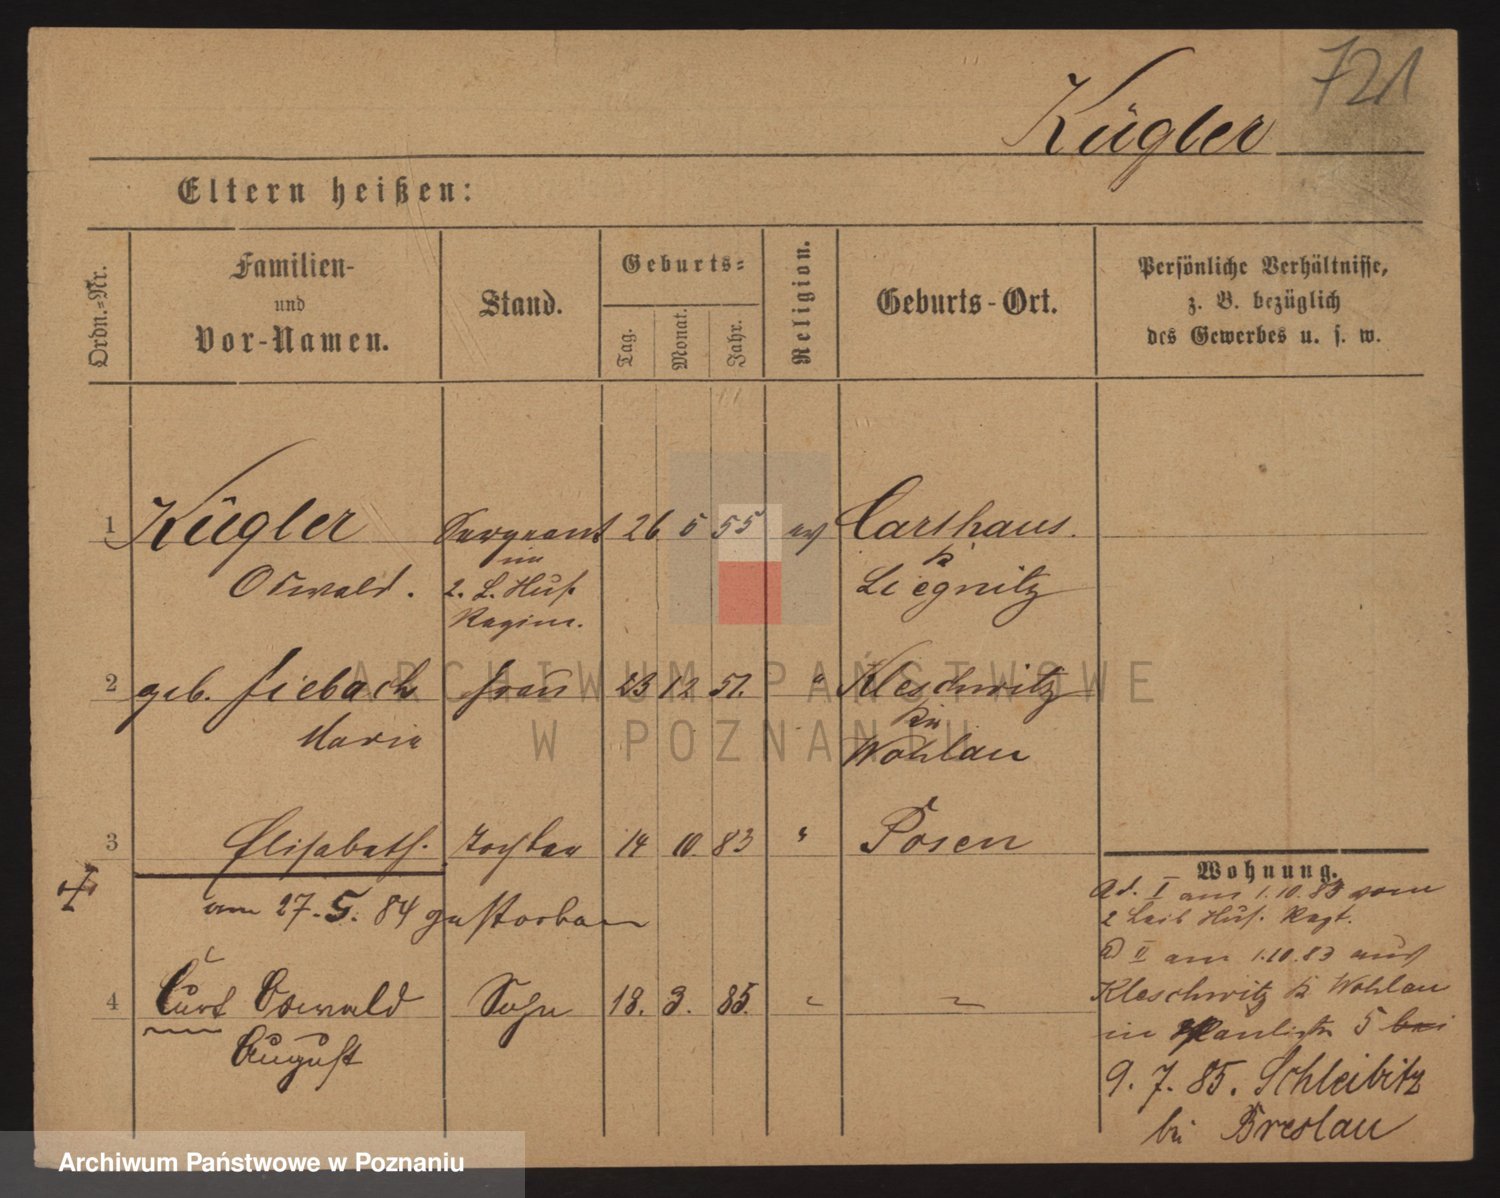 721
Kügler
Eltern heißen:
Ordn.-Nr.
Familien-
und
Vor-Namen.
Stand.
Geburts-
Tag.
Monat.
Jahr.
Religion.
Geburts-Ort.
Persönliche Verhältnisse,
z. B. bezüglich
des Gewerbes u. s. w.
1 Kügler Sergeant 26 5 55 ev Carthaus.
im k
Oswald. 2. L. Hus. Liegnitz
Regim.
2 geb. Fiebach Frau 23 12 57. " Kleschwitz
Kr
Maria Wohlau
3 Elisabeth. Tochter 14 10. 83 " Posen
am 27. 5. 84 gestorben
4 Curt Oswald Sohn 18. 3. 85. " "
August
Wohnung.
Ad. I am 1.10.83 vom
2 Leib Hus. Regt.
ad II am 1.10.83 aus
Kleschwitz k Wohlau
in 5 bei
9. 7. 85. Schleibitz
bei Breslau
ARCHIWUM PAŃSTWOWE
W POZNANIU
Archiwum Państwowe w Poznaniu